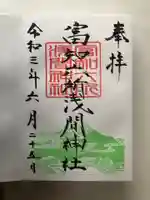 奉拝
富知六所浅間神社
令和三年六月二十五日